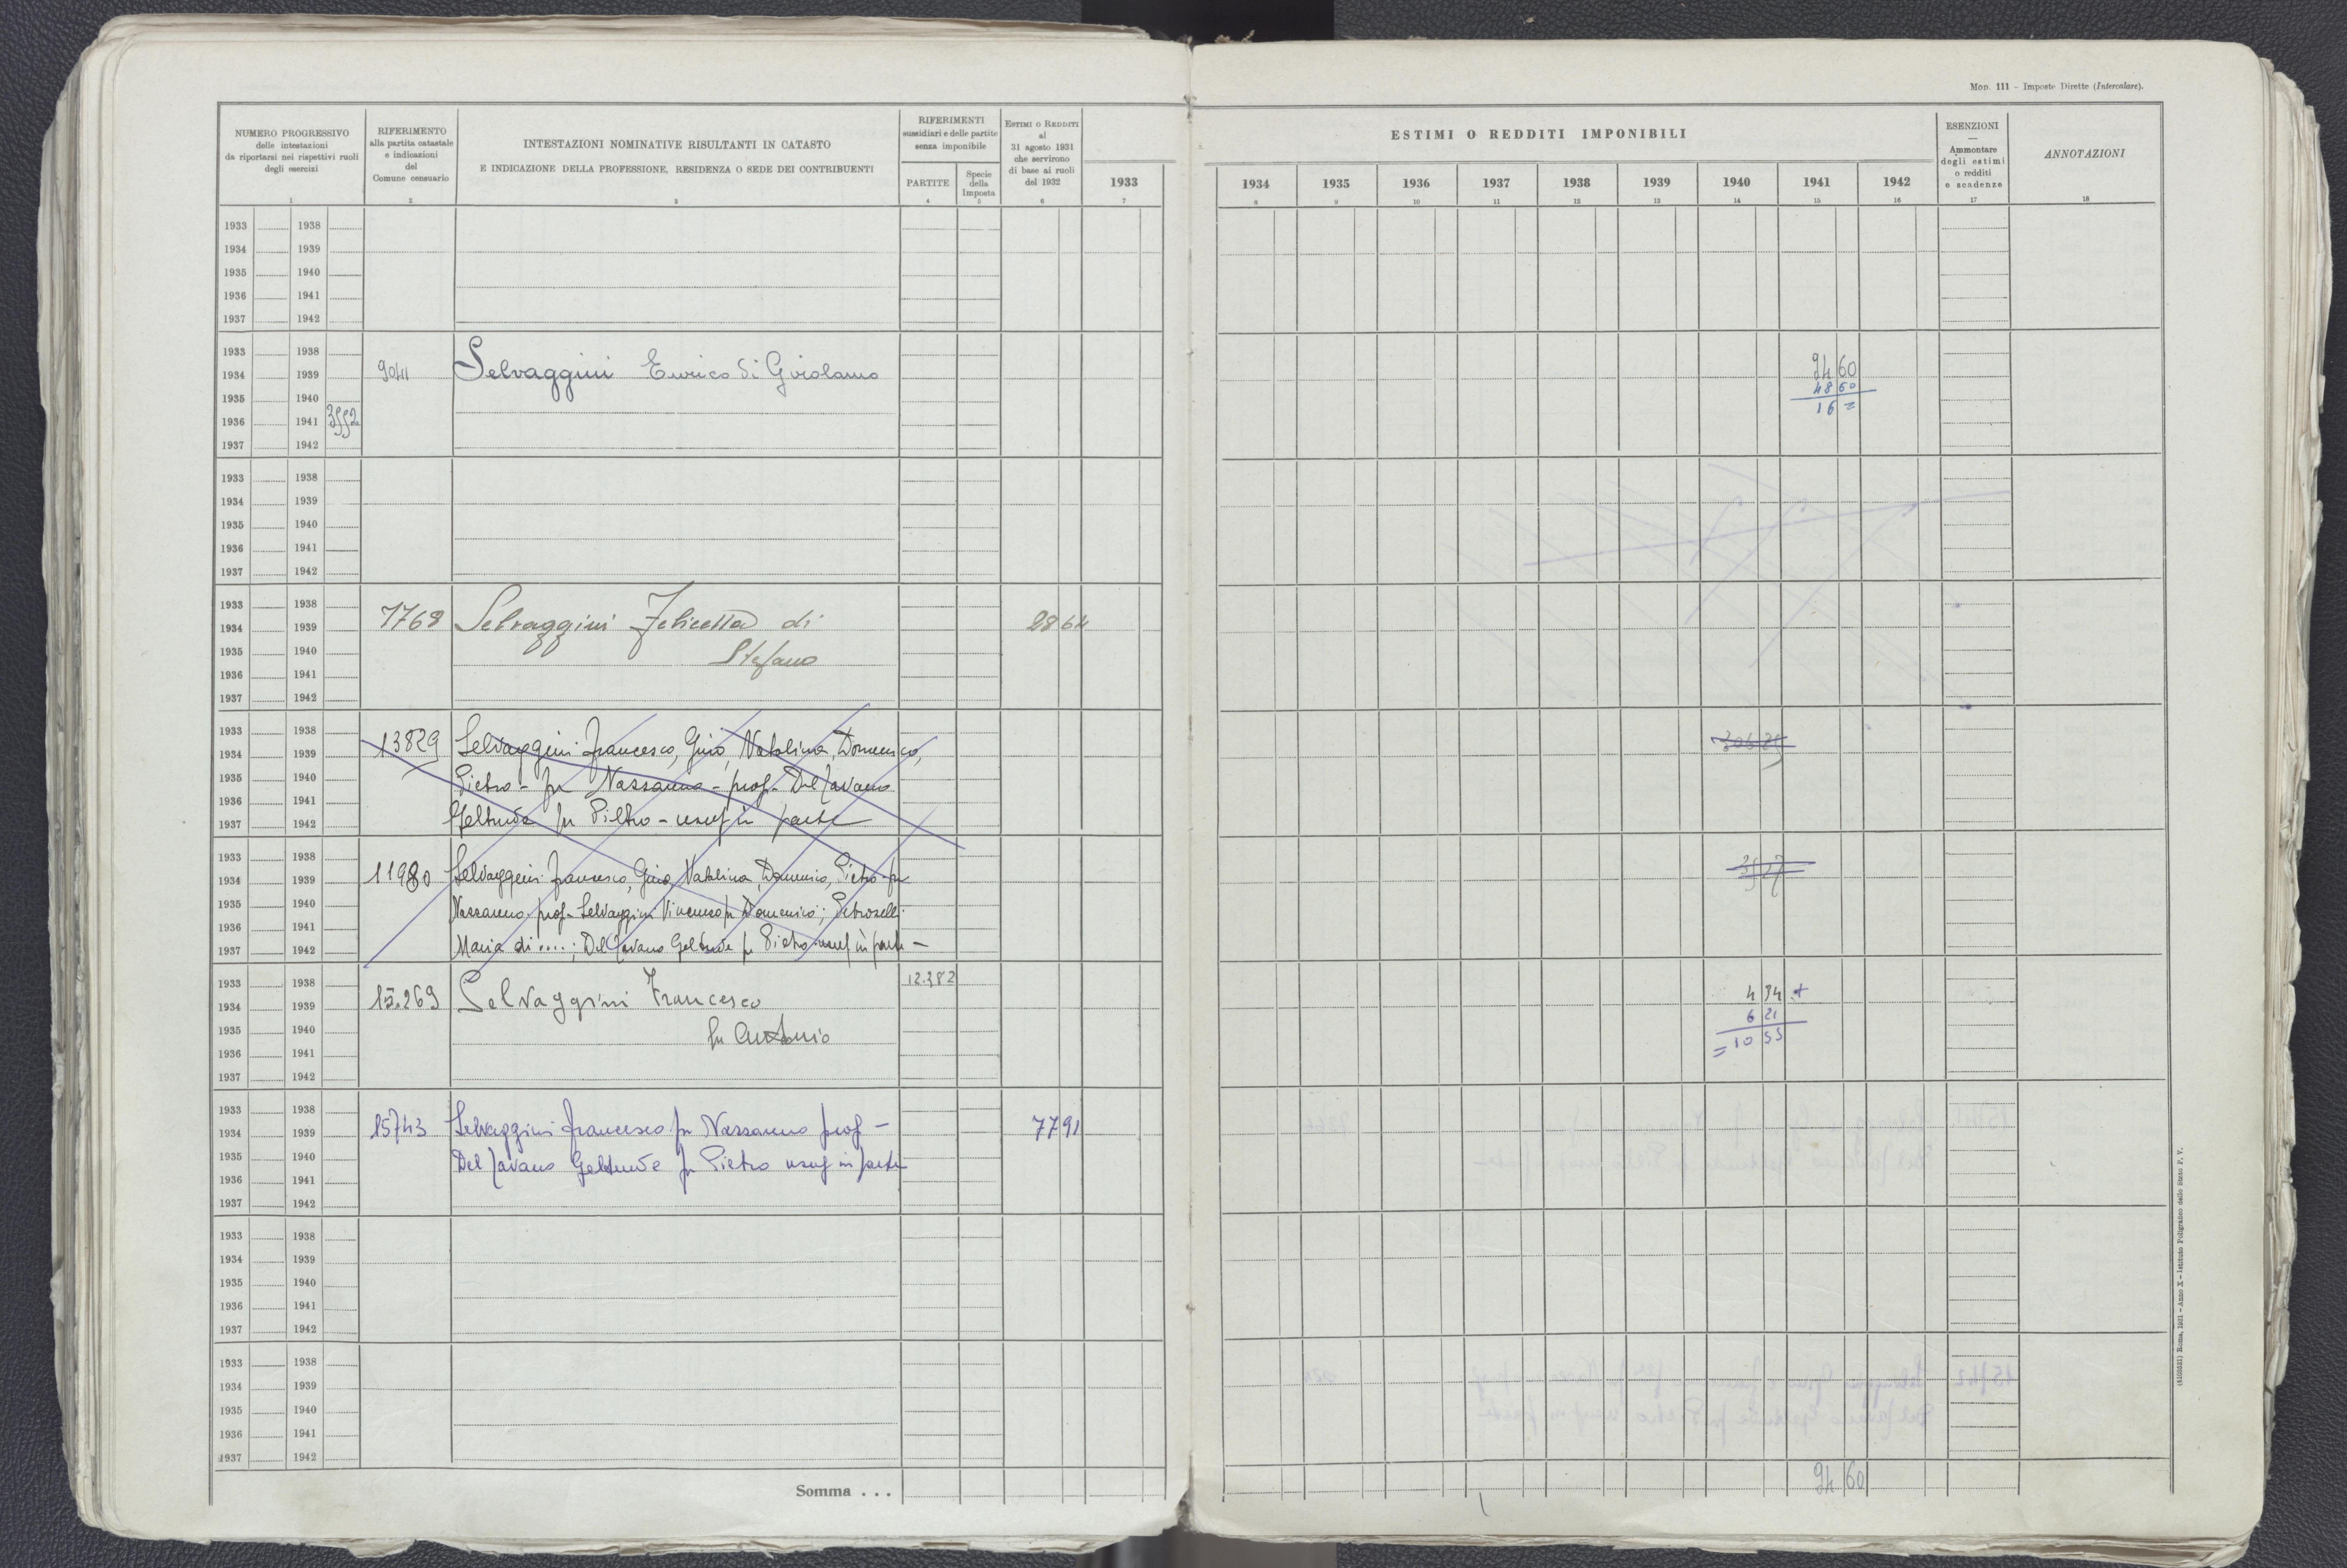 Mod. 111 - Imposte Dirette (Intercalare).
NUMERO PROGRESSIVO
delle intestazioni
da riportarsi nei rispettivi ruoli
degli esercizi
1
RIFERIMENTO
alla partita catastale
e indicazioni
del
Comune censuario
2
INTESTAZIONI NOMINATIVE RISULTANTI IN CATASTO
E INDICAZIONE DELLA PROFESSIONE, RESIDENZA O SEDE DEI CONTRIBUENTI
3
RIFERIMENTI
sussidiari e delle partite
senza imponibile
PARTITE
4
Specie
della
Imposta
5
ESTIMI O REDDITI
al
31 agosto 1931
che servirono
di base ai ruoli
del 1932
6
1933
7
ESTIMI O REDDITI IMPONIBILI
1934 1935 1936 1937 1938 1939 1940 1941 1942
8 9 10 11 12 13 14 15 16
ESENZIONI
—
Ammontare
degli estimi
o redditi
e scadenze
17
ANNOTAZIONI
18
1933 1938
1934 1939
1935 1940
1936 1941
1937 1942
1933 1938
1934 1939 9041 Selvaggini Enrico di Girolamo 94 60
1935 1940 48 60
1936 1941 3552 16 =
1937 1942
1933 1938
1934 1939
1935 1940
1936 1941
1937 1942
1933 1938
1934 1939 7768 Selvaggini Felicetta di 28 64
1935 1940 Stefano
1936 1941
1937 1942
1933 1938
1934 1939 13829 Selvaggini Francesco, Gino, Natalina, Domenico,
1935 1940 Pietro - fu Nassareno - prof. Del Savano
1936 1941
1937 1942 Geltrude fu Pietro - usuf in parte
1933 1938
1934 1939 11980 Selvaggini Francesco, Gino, Natalina, Domenico, Pietro fu
1935 1940 Nassareno prof - Selvaggini Vincenzo fu Domenico; Petroselli
1936 1941
1937 1942 Maria di ....; Del Savano Geltrude fu Pietro usuf in parte -
1933 1938 12.382
1934 1939 15.269 Selvaggini Francesco 4 34 +
1935 1940 fu Antonio 6 21
1936 1941 = 10 55
1937 1942
1933 1938
1934 1939 15743 Selvaggini Francesco fu Nassareno prof - 77 91
1935 1940 Del Savano Geltrude fu Pietro usuf in parte
1936 1941
1937 1942
1933 1938
1934 1939
1935 1940
1936 1941
1937 1942
1933 1938
1934 1939
1935 1940
1936 1941
1937 1942
Somma . . . 94 60
(4102581) Roma, 1931 - Anno X - Istituto Poligrafico dello Stato P. V.